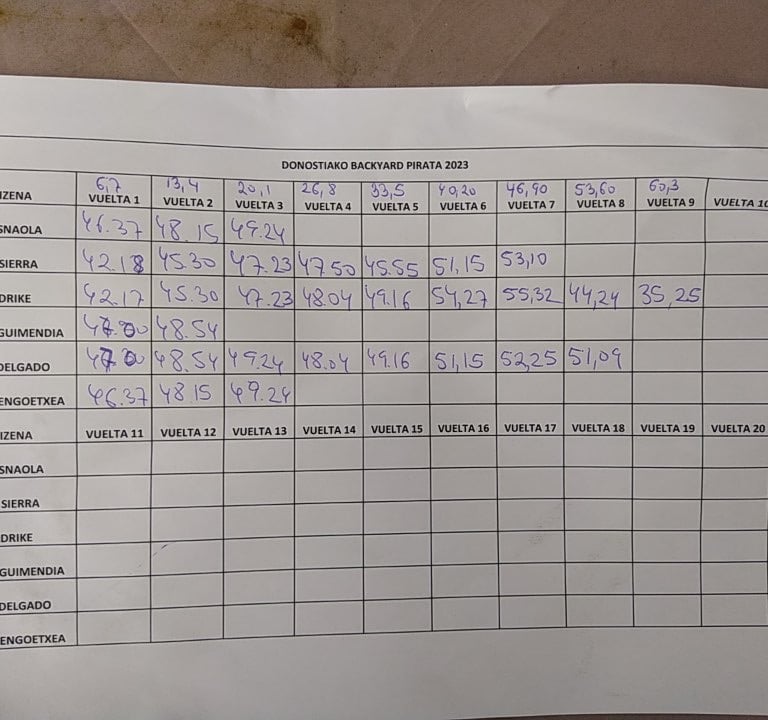 DONOSTIAKO BACKYARD PIRATA 2023
6,7 13,4 20,1 26,8 33,5 40,20 46,90 53,60 60,3
IZENA VUELTA 1 VUELTA 2 VUELTA 3 VUELTA 4 VUELTA 5 VUELTA 6 VUELTA 7 VUELTA 8 VUELTA 9 VUELTA 10
SNAOLA 46.37 48.15 49.24
SIERRA 42.18 45.30 47.23 47.50 45.55 51,15 53,10
DRIKE 42.17 45.30 47.23 48.04 49.16 54,27 55,32 44,24 35,25
GUIMENDIA 48.54
DELGADO 48.54 49.24 48.04 49.16 51,15 52,25 51,09
ENGOETXEA 46.37 48.15 49.24
IZENA VUELTA 11 VUELTA 12 VUELTA 13 VUELTA 14 VUELTA 15 VUELTA 16 VUELTA 17 VUELTA 18 VUELTA 19 VUELTA 20
SNAOLA
SIERRA
DRIKE
GUIMENDIA
DELGADO
ENGOETXEA